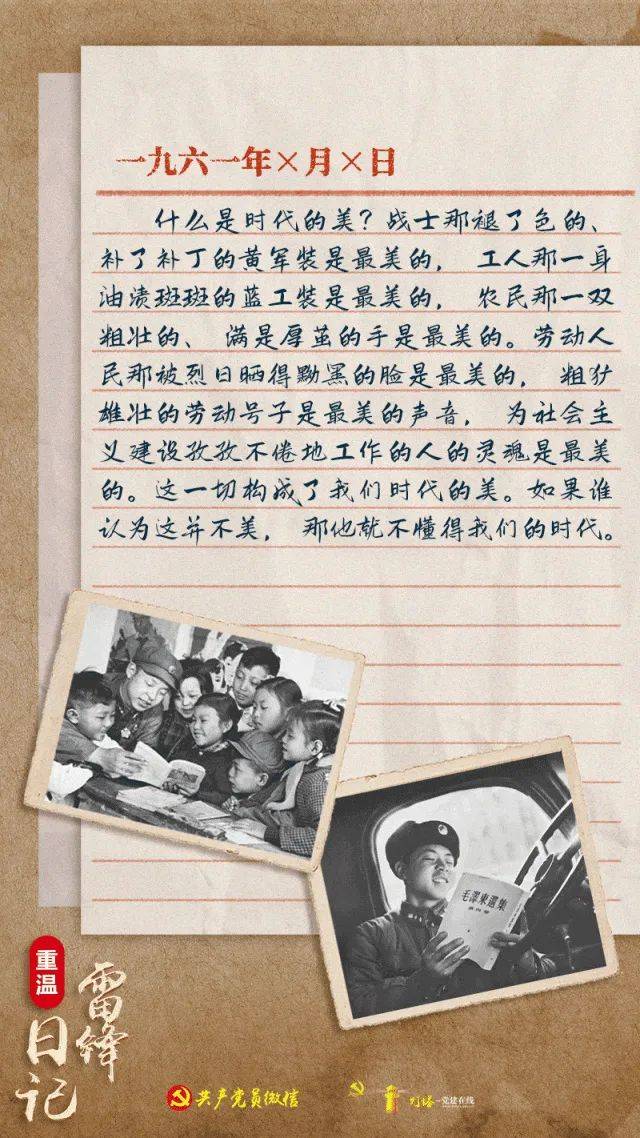 一九六一年×月×日
什么是时代的美？战士那褪了色的、
补了补丁的黄军装是最美的，工人那一身
油渍斑斑的蓝工装是最美的，农民那一双
粗壮的、满是厚茧的手是最美的。劳动人
民那被烈日晒得黝黑的脸是最美的，粗犷
雄壮的劳动号子是最美的声音，为社会主
义建设孜孜不倦地工作的人的灵魂是最美
的。这一切构成了我们时代的美。如果谁
认为这并不美，那他就不懂得我们的时代。
毛澤東選集
第四卷
重温
雷锋
日记
共产党员微信
灯塔-党建在线